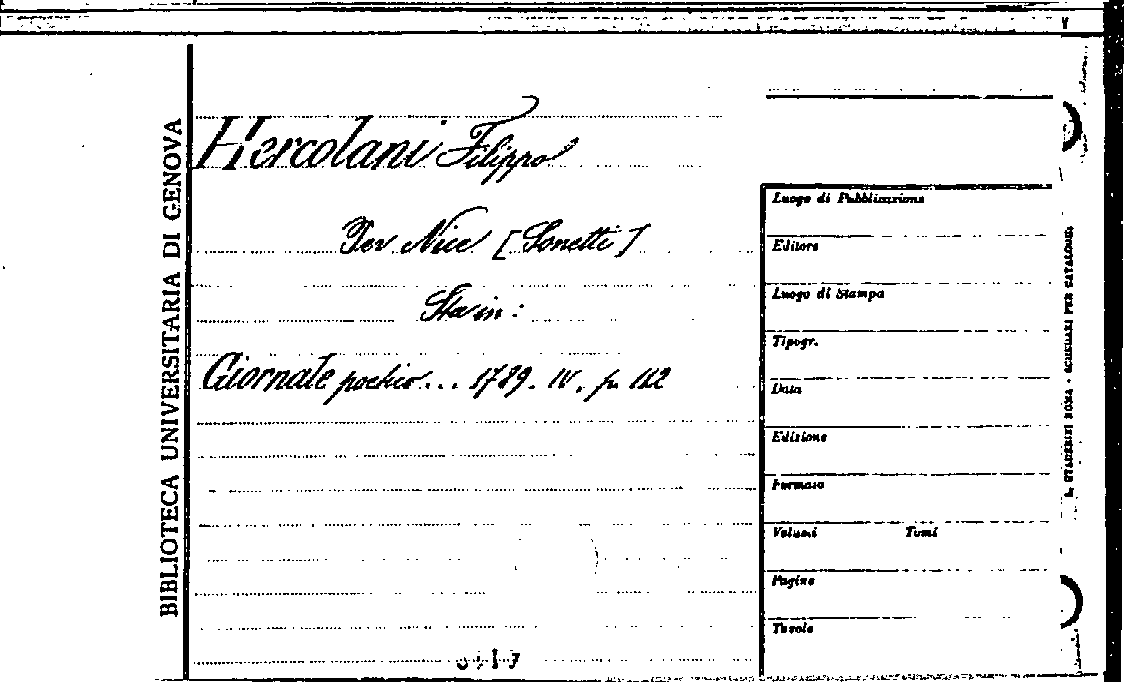 BIBLIOTECA UNIVERSITARIA DI GENOVA
Hercolani Filippo
Per Nice [Sonetti]
Sta in:
Giornale poetico... 1789. IV. p. 162
Luogo di Pubblicazione
Editore
Luogo di Stampa
Tipogr.
Data
Edizione
Formato
Volumi Tomi
Pagine
Tavole
STADERINI ROMA - SCHEDARI PER CATALOGHI